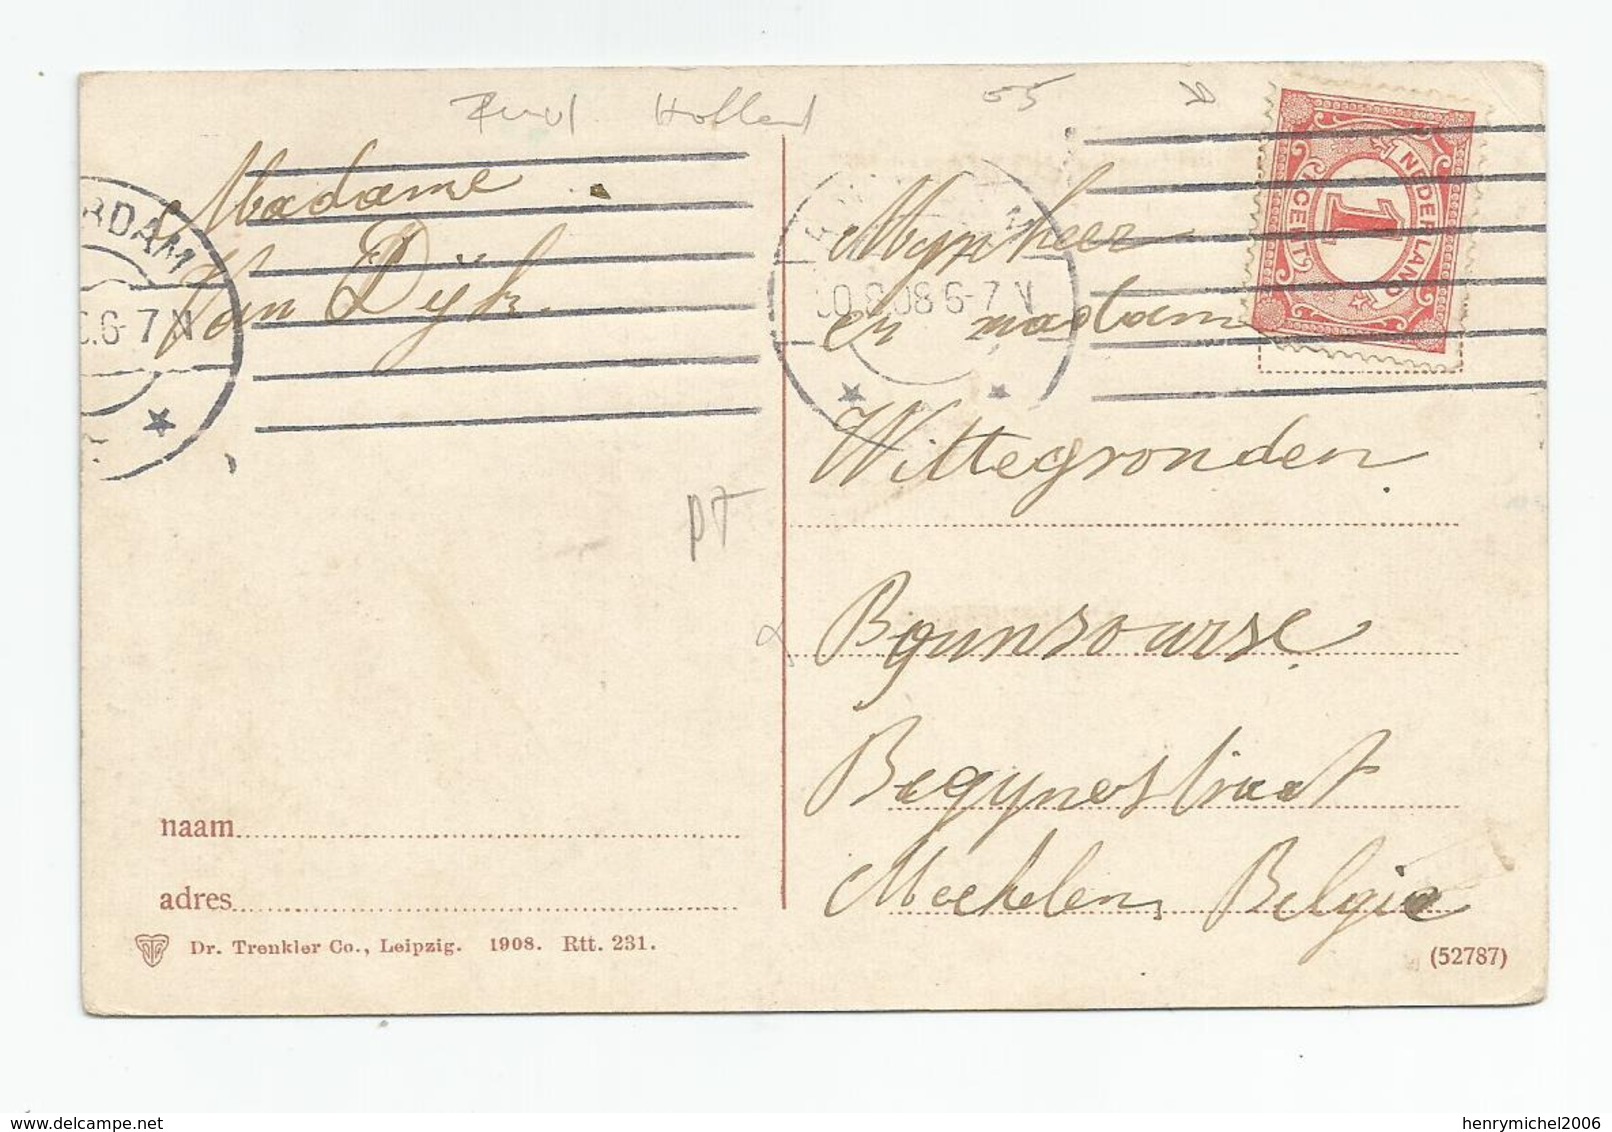 Holland 55
Madame
Van Dijk.
RDAM
6-7 N
Mynheer
en madam
Wittegronden
Begynestraat
Mechelen, Belgie
0.8.08 6-7 N
NEDERLAND
1
1 CENT
PT
naam
adres
Dr. Trenkler Co., Leipzig. 1908. Rtt. 231.
(52787)
henrymichel2006